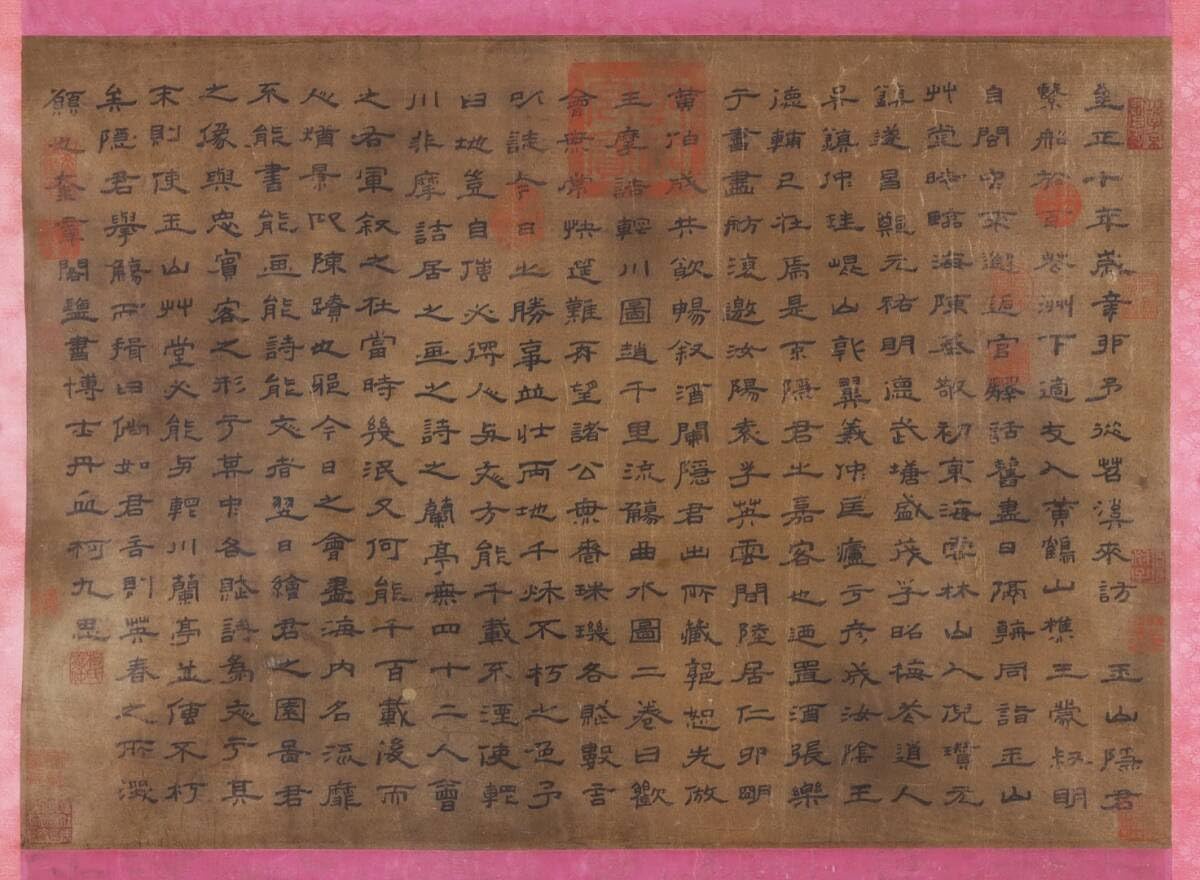 至正十年歲辛卯予從苕溪來訪玉山隱君
繫船於百花洲下適友人黃鶴山樵王蒙叔明
自閶門來邂逅官驛話舊盡日隔同詣玉山
艸堂時臨海陳基敬初東海張林山人倪瓚元
鎮遂昌鄭元祐明德武塘盛茂孚昭梅花道人
吳鎮仲珪崐山郭翼羲仲匡廬于彥成汝陰王
德輔已在焉是亦隱君之嘉客也迺置酒張樂
于書畫舫復邀汝陽袁子英雲間陸居仁卯朙
黃伯成共飲暢敘酒闌隱君出所藏郭恕先倣
王摩詰輞川圖趙千里流觴曲水圖二卷曰歡
會無常快遊難再望諸公無吝珠璣各賦數言
以誌今日之勝事並壯兩地千秋不朽之色予
曰地豈自傳必得心與文方能千載不湮使輞
川非摩詰居之畫之詩之蘭亭無四十二人會
之右軍敘之在當時幾泯又何能千百載後而
人猶景仰陳蹟也耶今日之會盡海內名流靡
不能書能畫能詩能文者翌日繪君之園圖君
之像與賓客之形于其中各賦詩為文于其
末則使玉山艸堂必能與輞川蘭亭並傳不朽
矣隱君舉觴而稽曰倘如君言則英春之所深
願也奎章閣鑒書博士丹丘柯九思